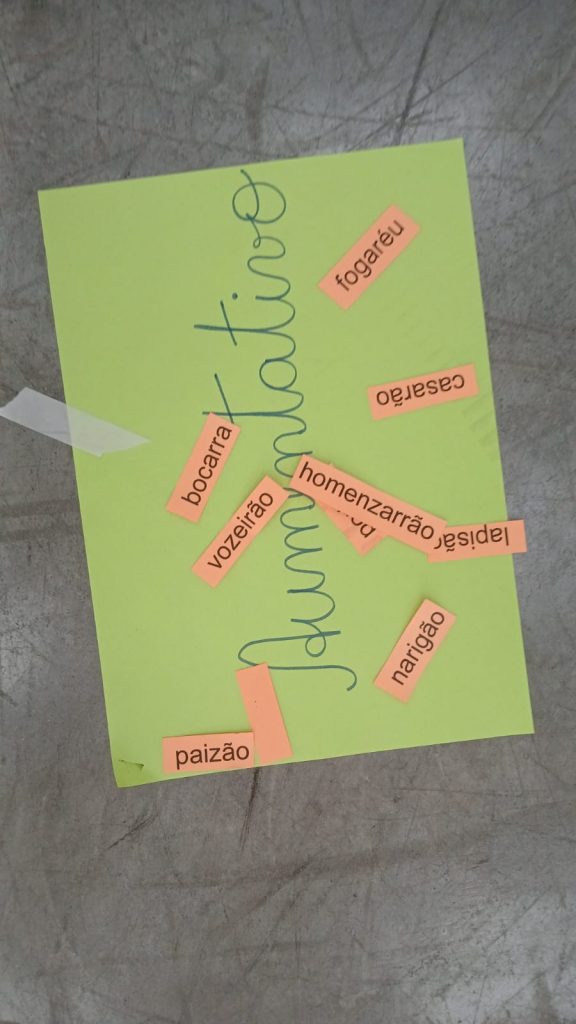 Aumentativo
fogaréu
casarão
bocarra
homenzarrão
vozeirão
narigão
paizão